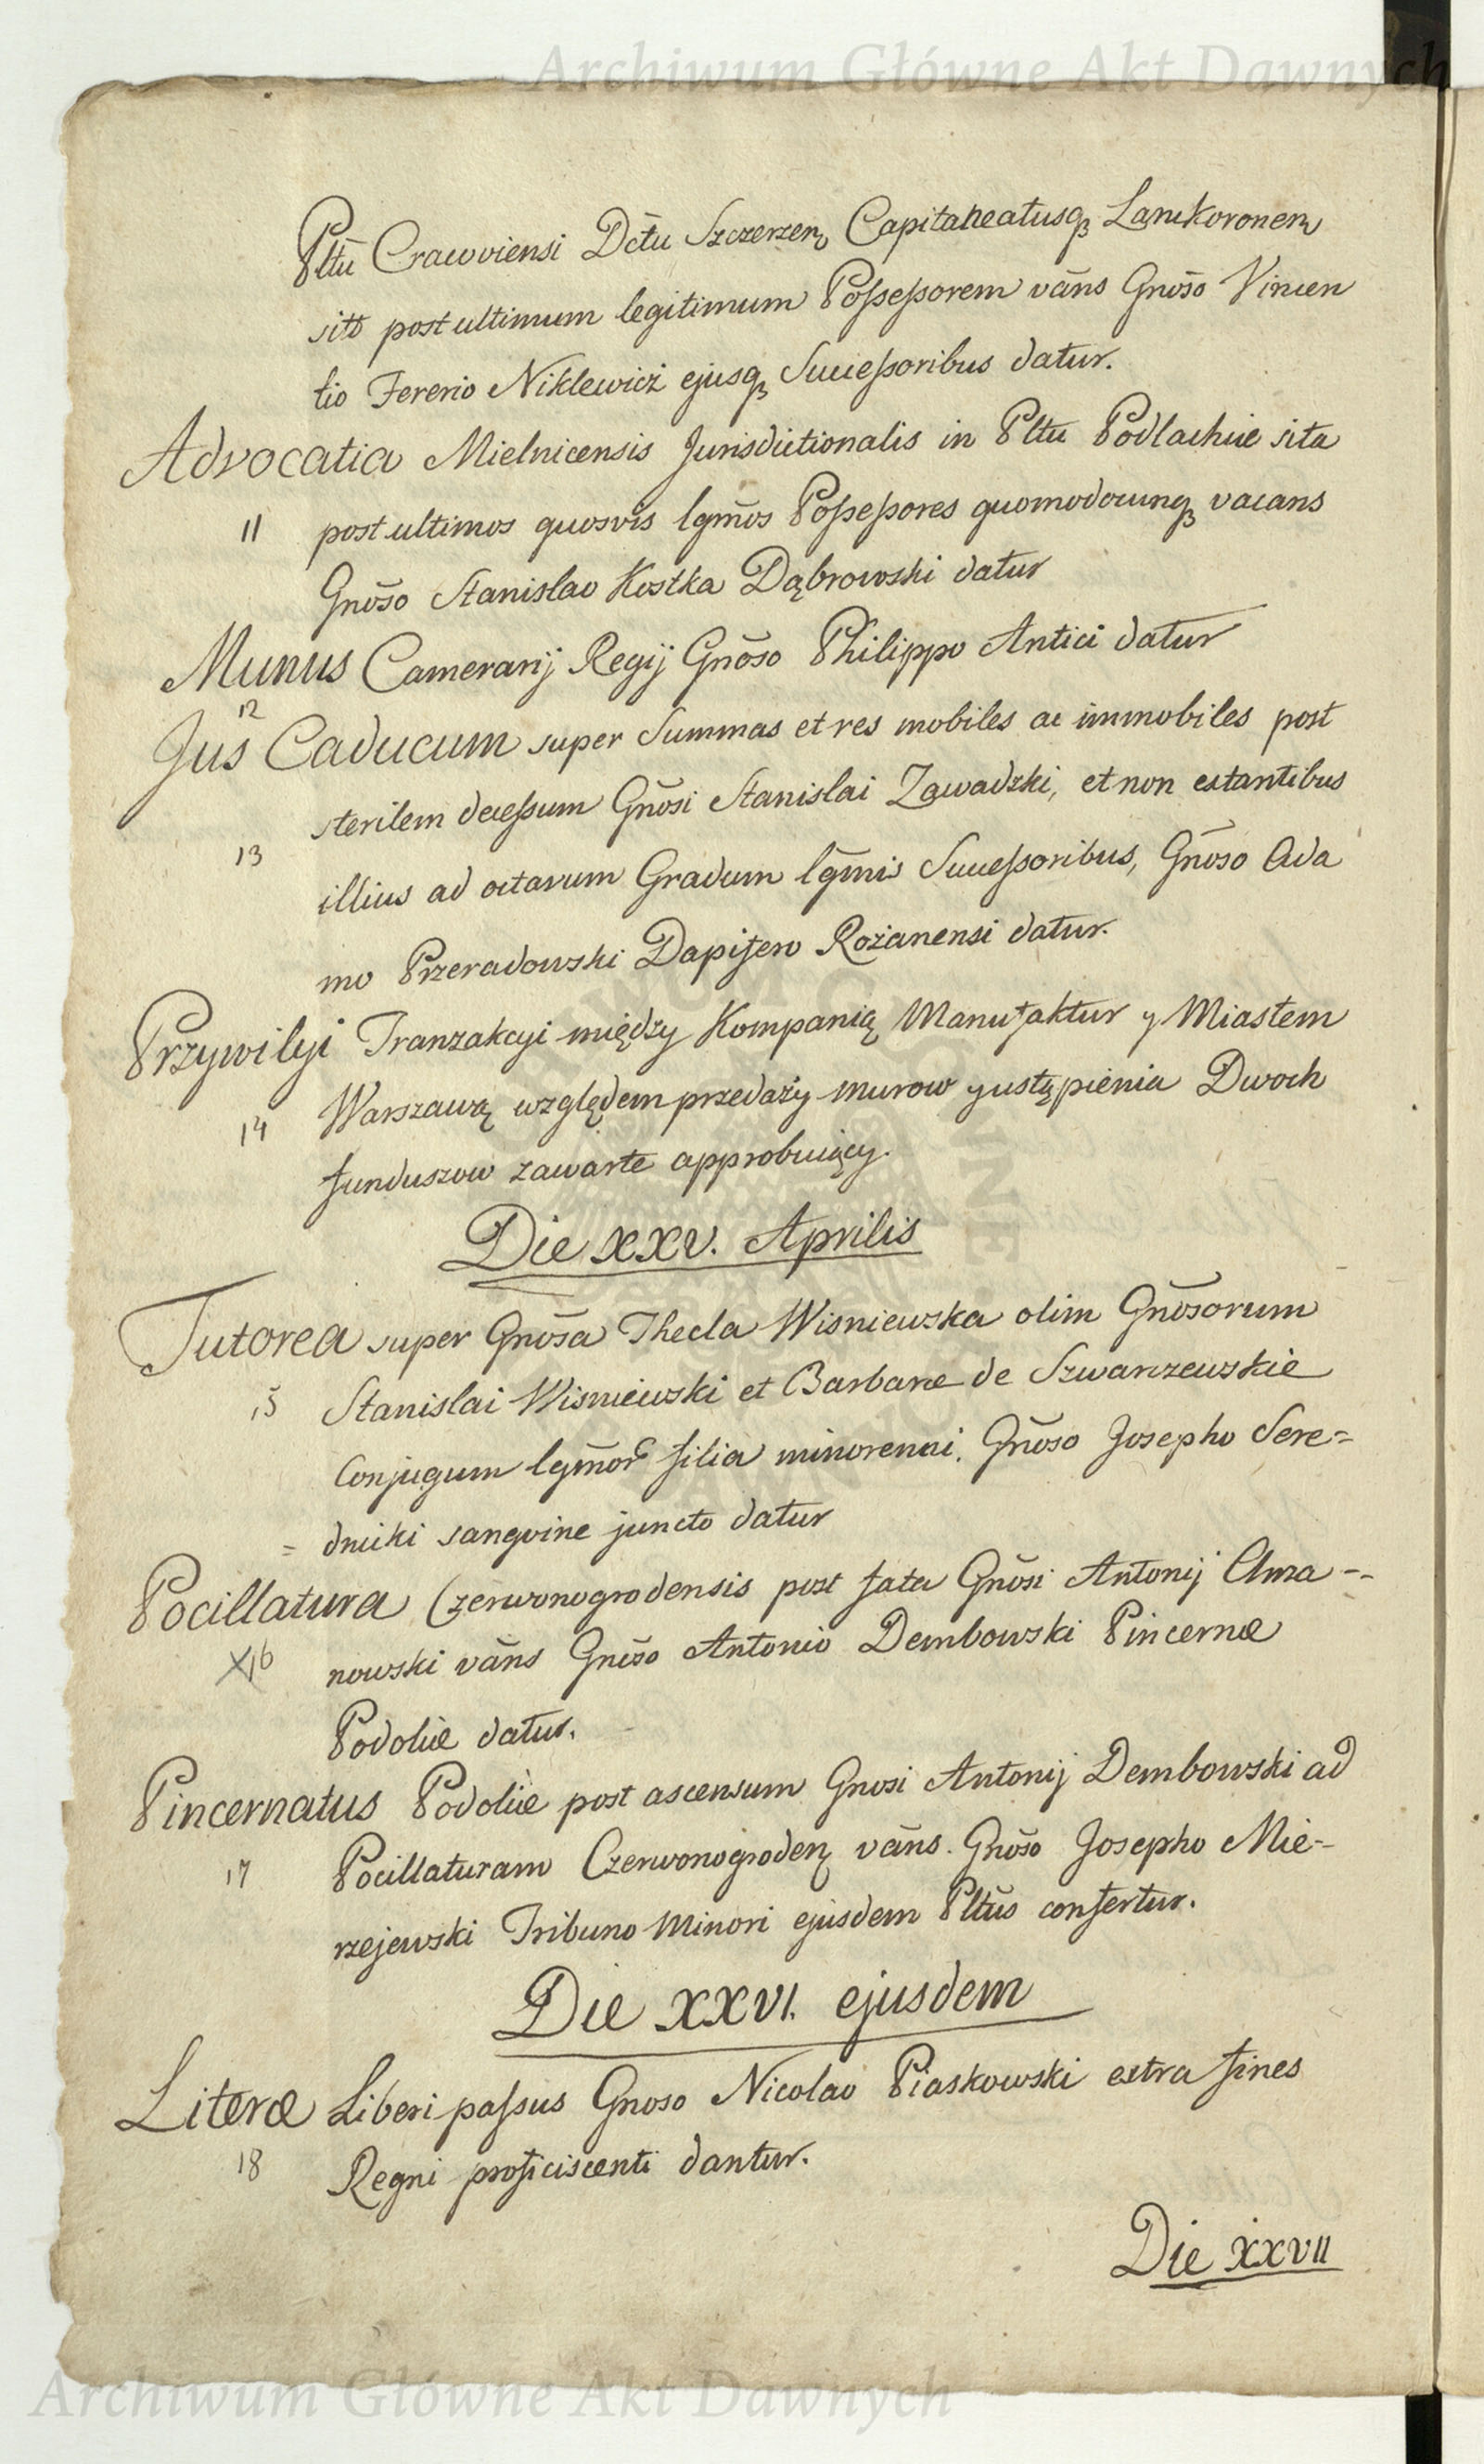 Archiwum Główne Akt Dawnych
Pltū Cracoviensi Dctū Szczerzen, Capitaneatusqꝫ Lanckoronen
sito post ultimum legitimum Poſseſsorem vāns Gnōso Vincen
tio Fererio Niklewicz ejusqꝫ Succeſsoribus datur.
Advocatia Mielnicensis Jurisdictionalis in Pltū Podlachiæ sita
11 post ultimos quosvis lgm̄os Poſseſsores quomodocunqꝫ vacans
Gnōso Stanislao Kostka Dąbrowski datur
Munus Camerarij Regij Gnōso Philippo Antici datur
12
Jus Caducum super Summas et res mobiles ac immobiles post
sterilem deceſsum Gnōsi Stanislai Zawadzki, et non extantibus
13 illius ad octavum Gradum lgm̄is Succeſsoribus, Gnōso Ada
mo Przeradowski Dapifero Rożanensi datur.
Przywilyi Tranzakcyi między Kompanią Manufaktur y Miastem
14 Warszawą względem przedaży murow y ustąpienia Dwoch
funduszow zawarte approbuiący.
Die XXV. Aprilis
Tutorea super Gnōsa Thecla Wisniewska olim Gnōsorum
15 Stanislai Wisniewski et Barbaræ de Szwarzewskie
Conjugum lgm̄or filia minorenni. Gnōso Josepho Sere=
= dnicki sangvine juncto datur
Pocillatura Czerwonogrodensis post fata Gnōsi Antonij Chrza=
X16 nowski vāns Gnōso Antonio Dembowski Pincernæ
Podoliæ datur.
Pincernatus Podoliæ post ascensum Gnosi Antonij Dembowski ad
17 Pocillaturam Czerwonogroden vāns. Gnōso Josepho Mie=
rzejewski Tribuno Minori ejusdem Pltūs confertur.
Die XXVI. ejusdem
Literæ Liberi paſsus Gnoso Nicolao Piaskowski extra fines
18 Regni proficiscenti dantur.
Die XXVII
Archiwum Główne Akt Dawnych